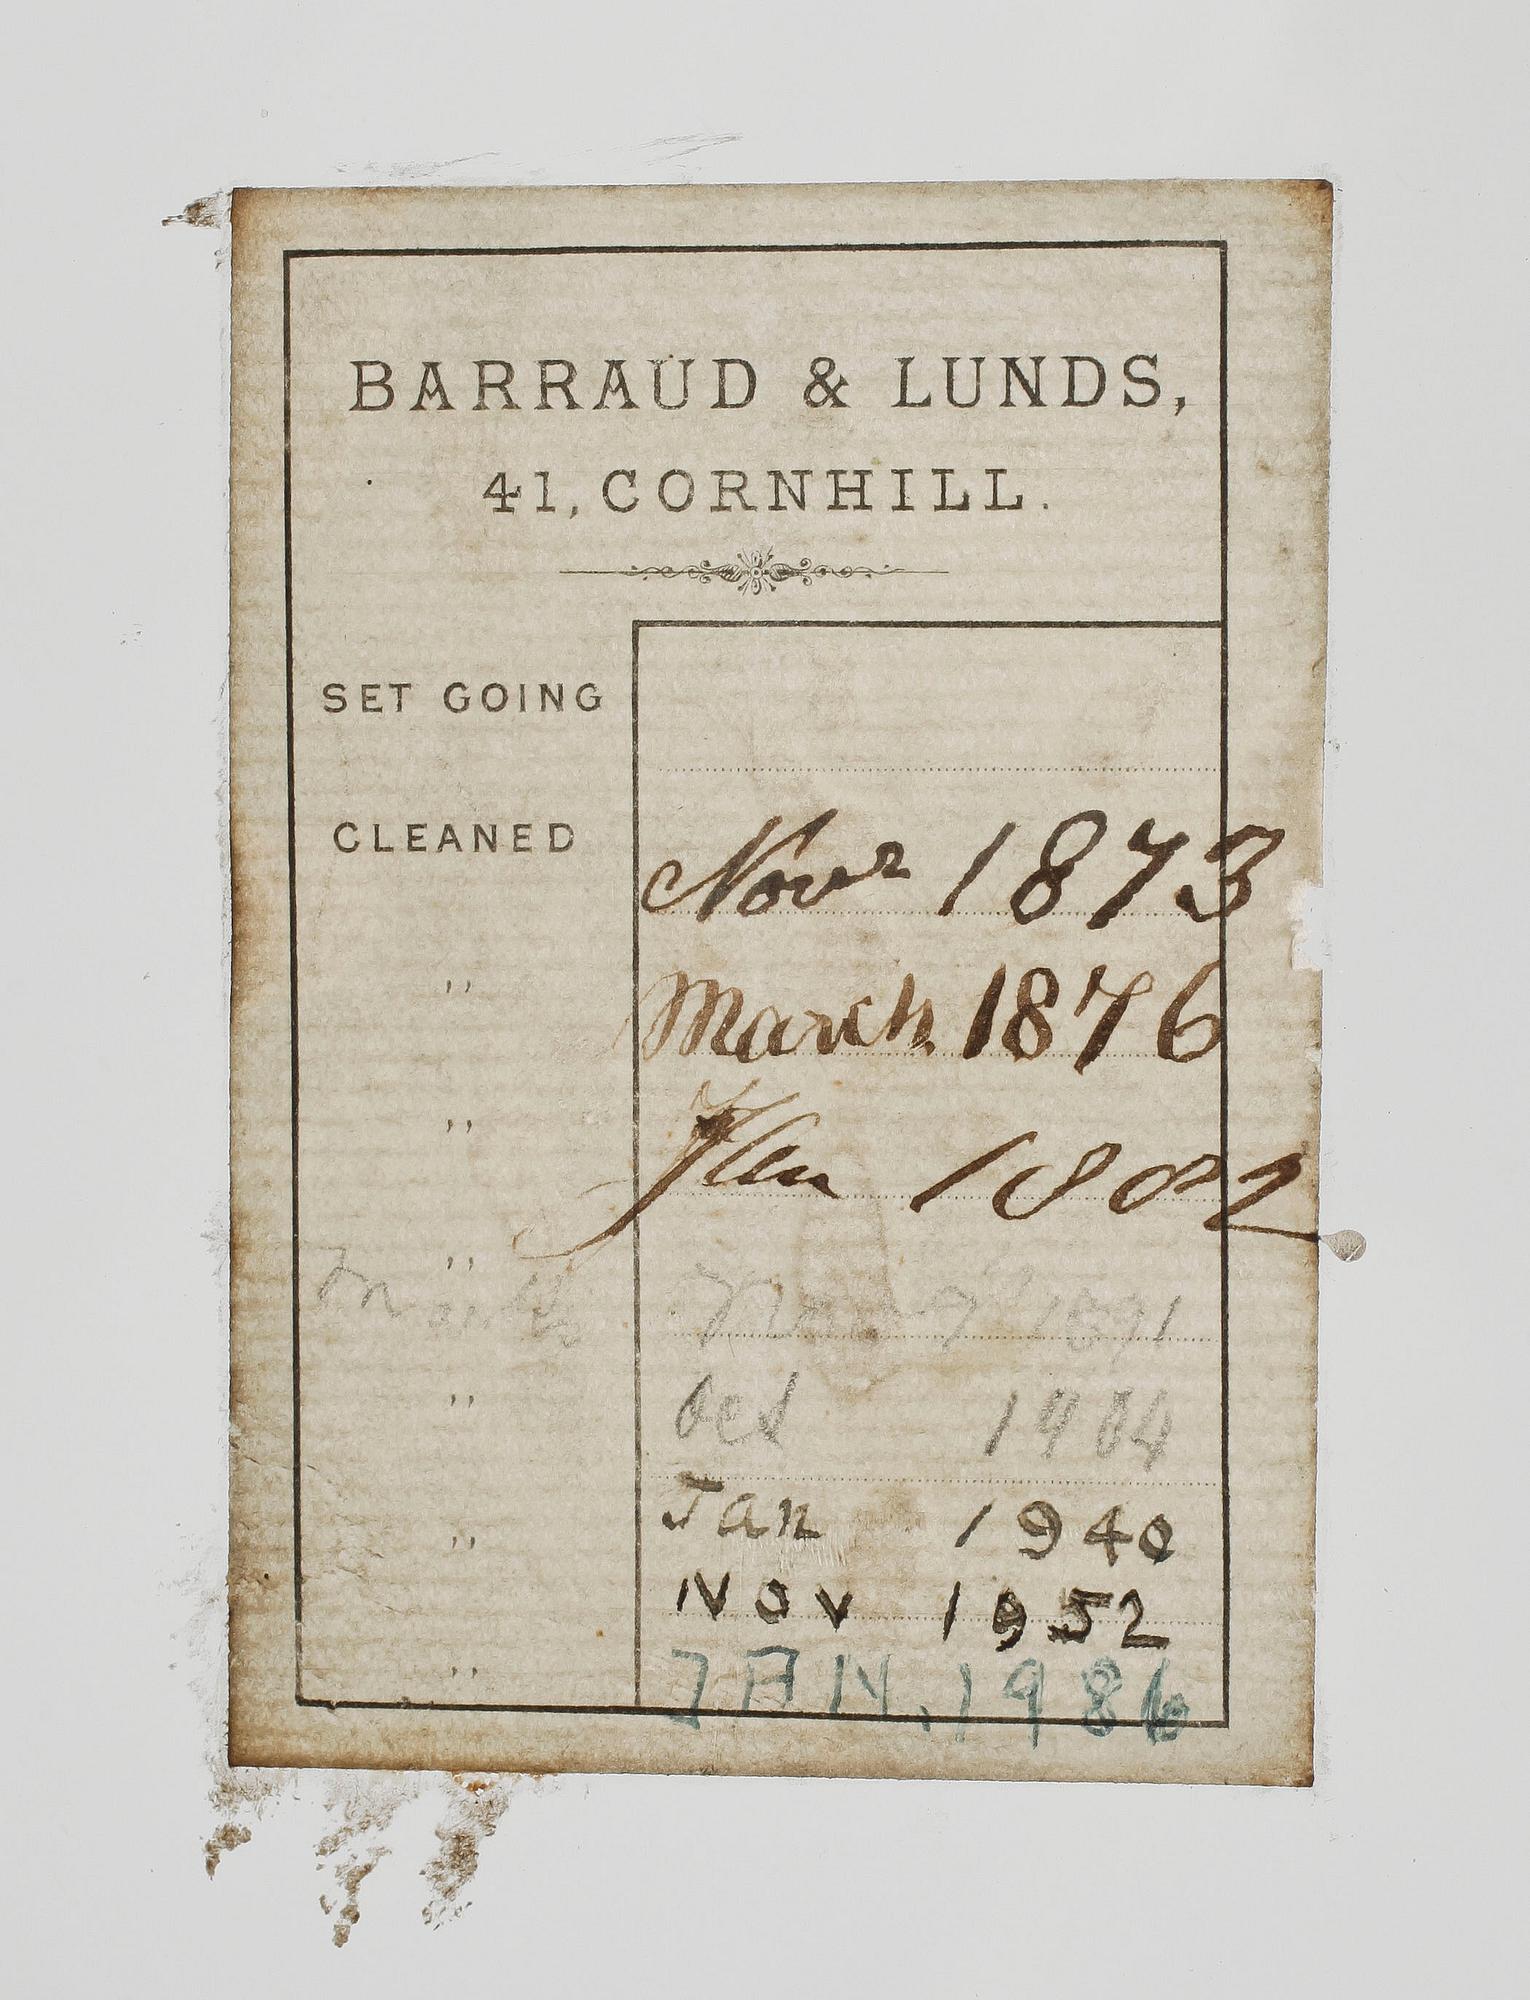 BARRAUD & LUNDS,
41, CORNHILL.
SET GOING
CLEANED Novr 1873
" March 1876
" Jan 1882
" 1891
" Oct 1904
" Jan 1940
Nov 1952
" JAN. 1986